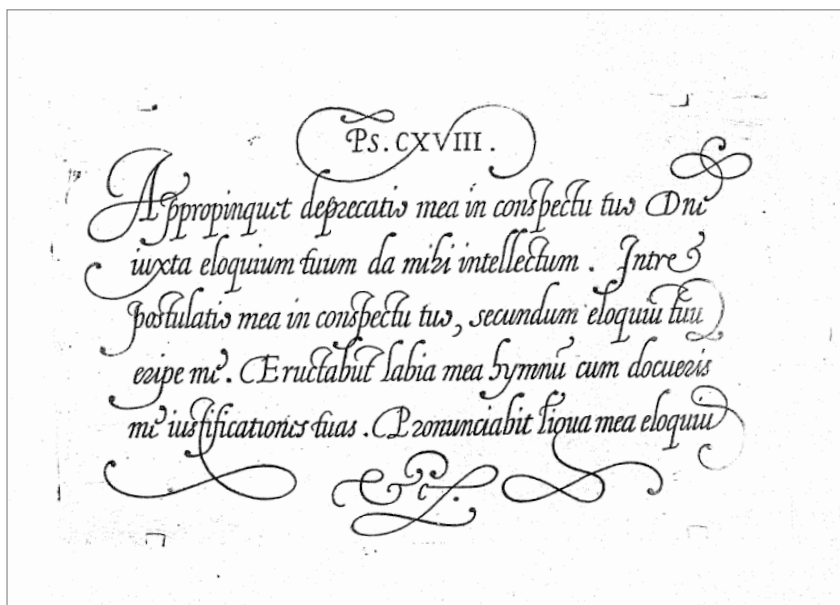 Ps. CXVIII.
Appropinquet deprecatio mea in conspectu tuo Dne
iuxta eloquium tuum da mihi intellectum. Intret
postulatio mea in conspectu tuo, secundum eloquiũ tuũ
eripe me. Eructabũt labia mea hymnũ cum docueris
me iustificationes tuas. Pronunciabit ligua mea eloquiũ
&c.